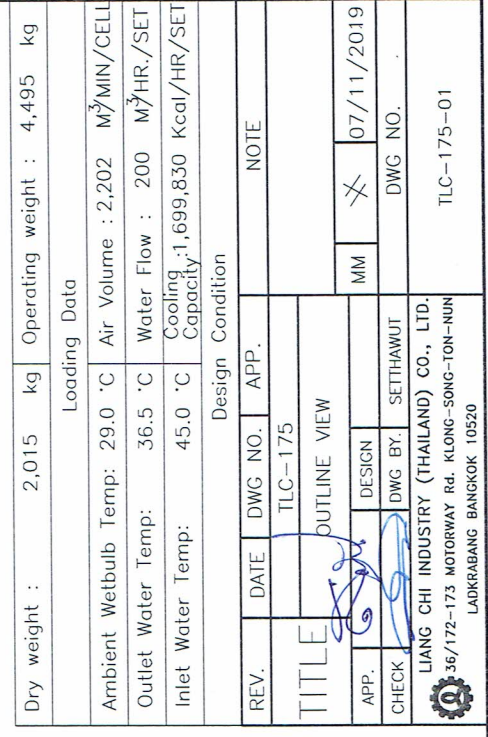 Dry weight : 2,015 kg Operating weight : 4,495 kg
Loading Data
Ambient Wetbulb Temp: 29.0 °C Air Volume : 2,202 M³/MIN/CELL
Outlet Water Temp: 36.5 °C Water Flow : 200 M³/HR./SET
Inlet Water Temp: 45.0 °C Cooling Capacity:1,699,830 Kcal/HR/SET
Design Condition
REV. DATE DWG NO. APP. NOTE
TITLE
TLC-175
OUTLINE VIEW
MM 07/11/2019
APP. DESIGN
CHECK DWG BY. SETTHAWUT DWG NO. .
LIANG CHI INDUSTRY (THAILAND) CO., LTD.
36/172-173 MOTORWAY Rd. KLONG-SONG-TON-NUN
LADKRABANG BANGKOK 10520
TLC-175-01